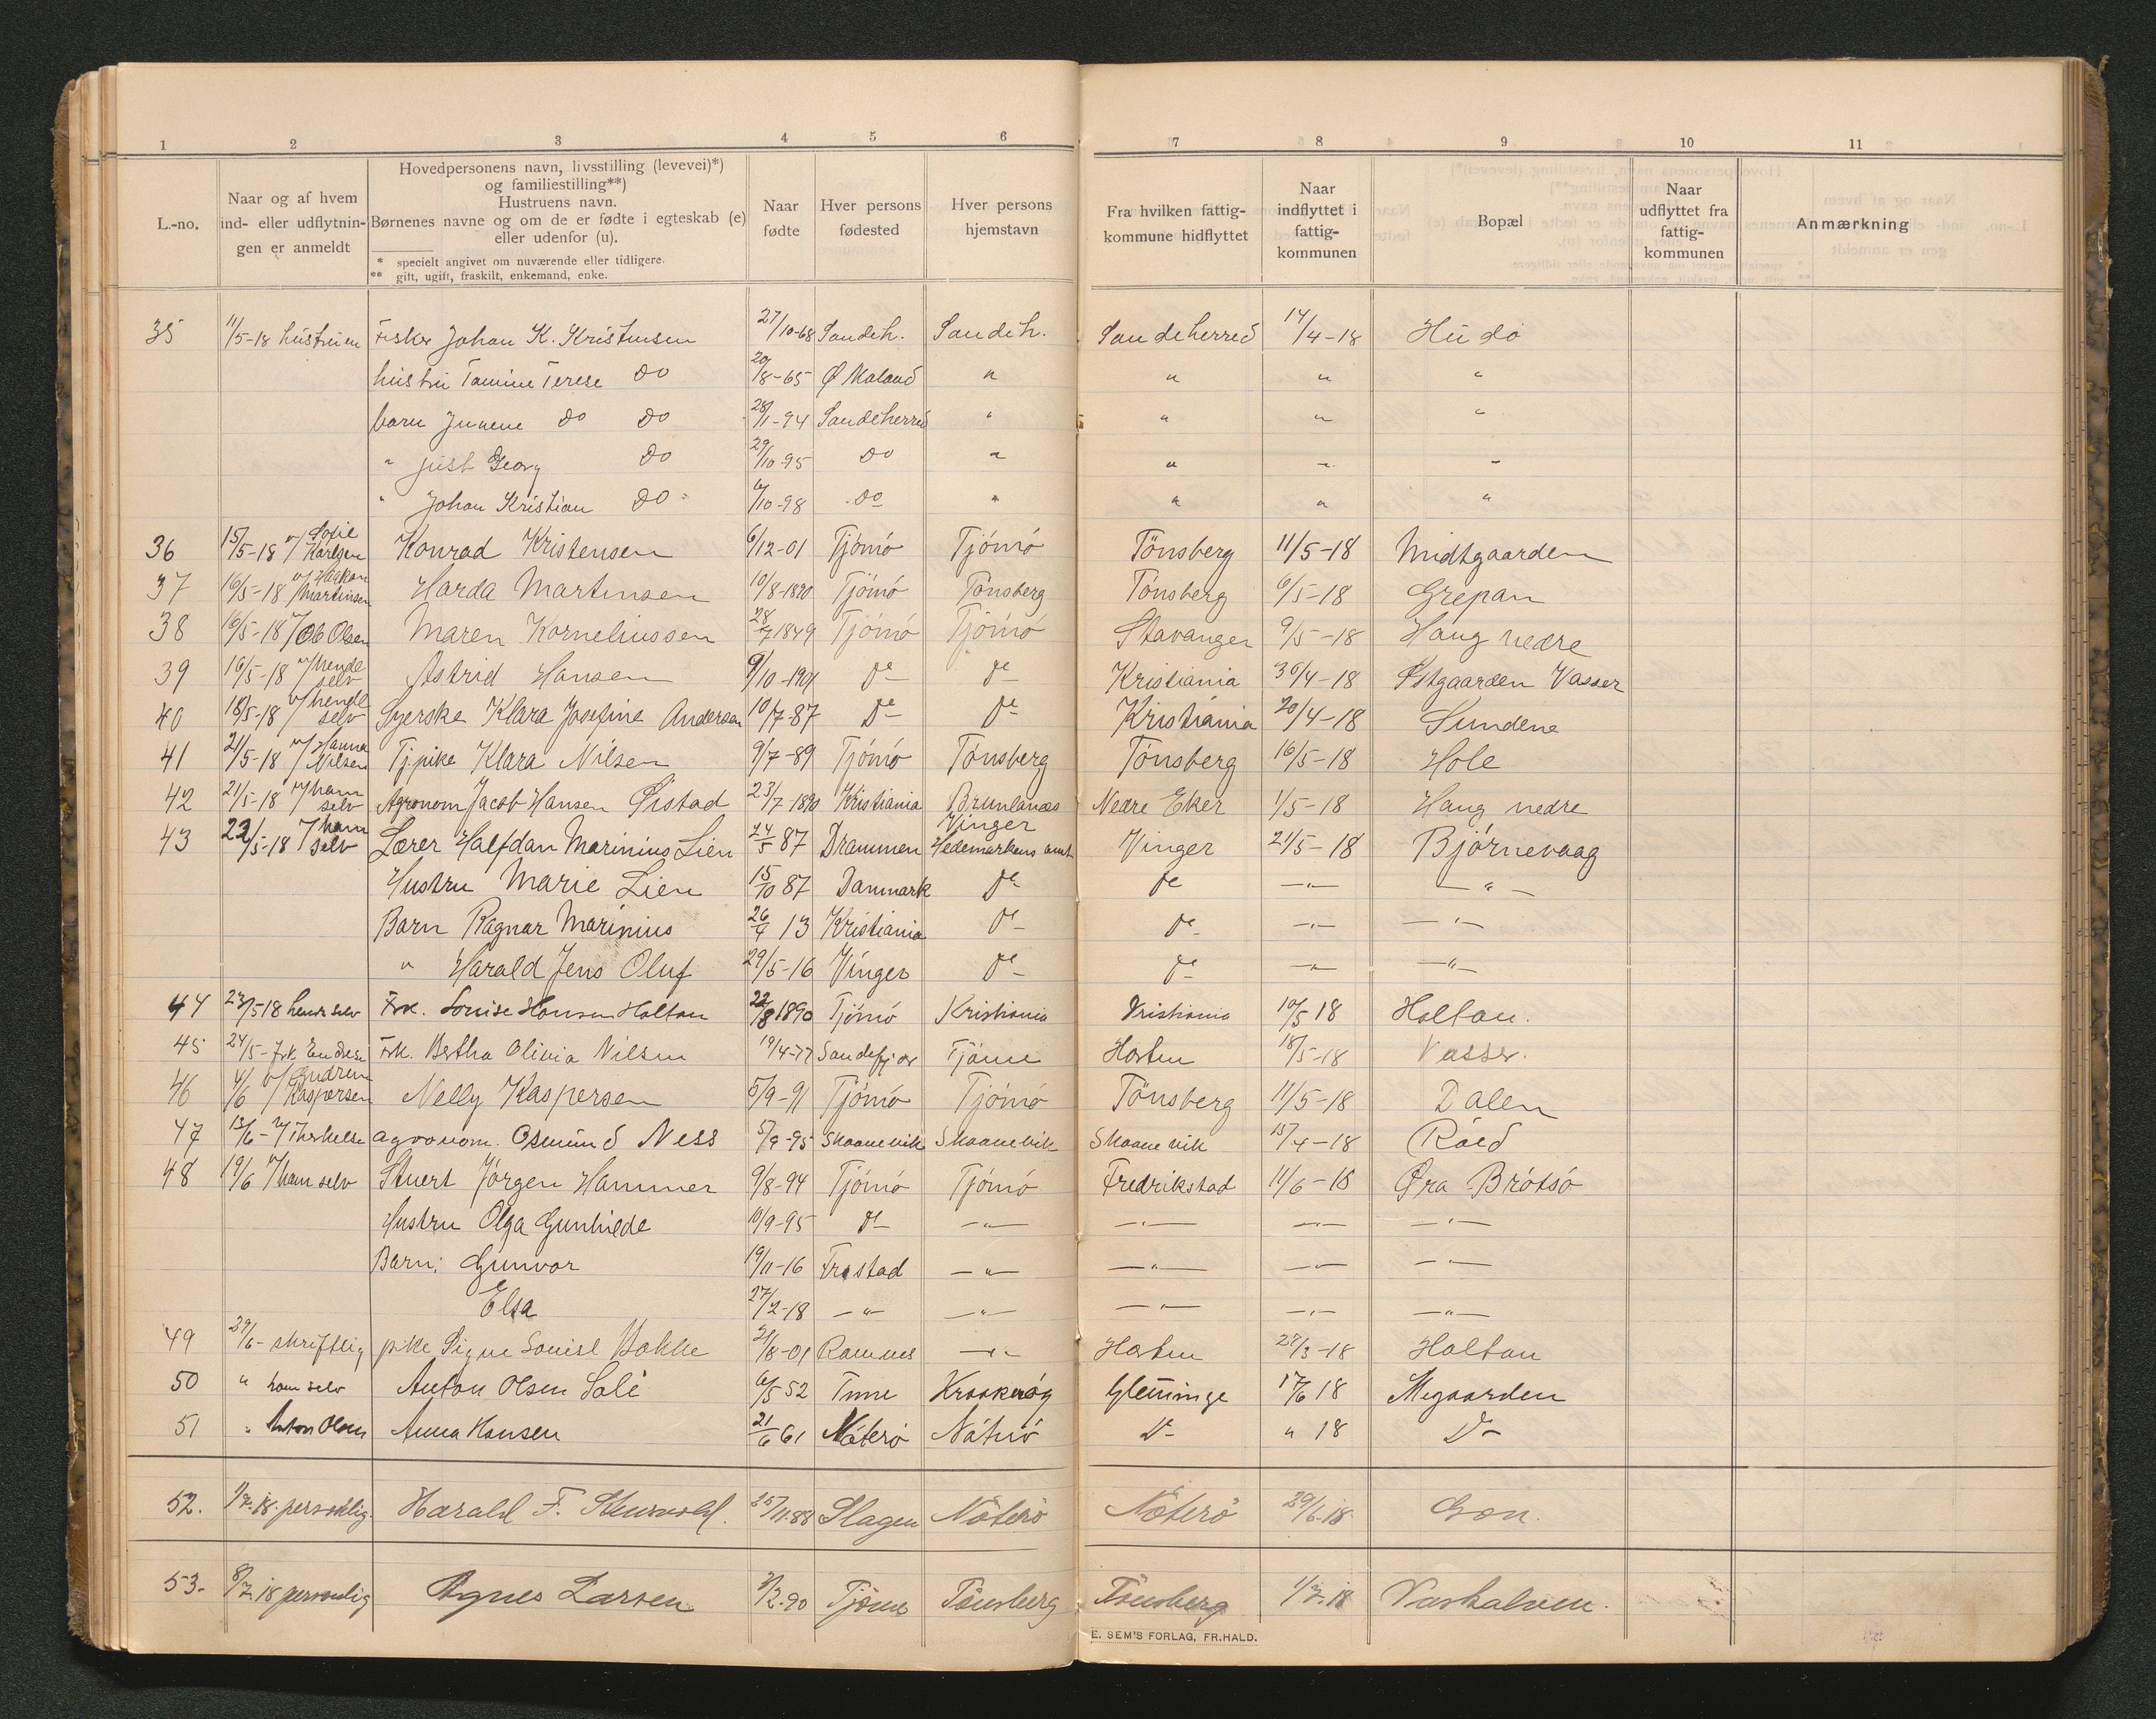 1 2 3 4 5 6 7 8 9 10 11
L.-no.
Naar og af hvem
ind- eller udflytnin-
gen er anmeldt
Hovedpersonens navn, livsstilling (levevei)*)
og familiestilling**)
Hustruens navn.
Børnenes navne og om de er fødte i egteskab (e)
eller udenfor (u).
* specielt angivet om nuværende eller tidligere.
** gift, ugift, fraskilt, enkemand, enke.
Naar
fødte
Hver persons
fødested
Hver persons
hjemstavn
Fra hvilken fattig-
kommune hidflyttet
Naar
indflyttet i
fattig-
kommunen
Bopæl
Naar
udflyttet fra
fattig-
kommunen
Anmærkning
35 11/5-18 hustruen Fisker Johan K. Kristensen 27/10-68 Sandeh. Sandeh. Sandeherred 14/4-18 Hudø
hustru Tamine Terese Do 20/8-65 Ø Moland " " " "
barn Do Do 28/1-94 Sandeherred " " " "
" Just Georg Do 29/10-95 Do " " " "
" Johan Kristian Do 6/10-98 Do " " " "
36 15/5-18 v/ Sofie Karlsen Konrad Kristensen 6/12-01 Tjömö Tjömö Tönsberg 11/5-18 Midtgaarden
37 16/5-18 v/ Haakon Martinsen Harda Martinsen 10/8-1890 Tjömö Tönsberg Tönsberg 6/5-18 Grepan
38 16/5-18 v/ Ob Olsen Maren Korneliussen 28/7 1849 Tjömö Tjömö Stavanger 9/5-18 Haug nedre
39 16/5-18 v/ hende selv Astrid Hansen 9/10-1901 do do Kristiania 30/4-18 Østgaarden Vasser
40 18/5-18 v/ hende selv Syerske Klara Josefine Andersen 10/7-87 do do Kristiania 20/4-18 Sundene
41 21/5-18 v/ Hanna Nilsen Tj.pike Klara Nilsen 9/7-89 Tjömö Tönsberg Tönsberg 16/5-18 Hole
42 21/5-18 v/ ham selv Agronom Jacob Hansen Øistad 23/7-1890 Kristiania Brunlanæs Nedre Eker 1/5-18 Haug nedre
43 22/5-18 v/ ham selv Lærer Halfdan Marinius Lien 24/5 87 Drammen Vinger Hedemarkens amt Vinger 21/5-18 Björnevaag
Hustru Marie Lien 15/10 87 Danmark do do -"- -"-
Barn Ragnar Marinius 26/4 13 Kristiania do do -"- -"-
" Harald Jens Oluf 29/5-16 Vinger do do -"- -"-
44 23/5-18 hende selv Frk. Louise Hansen Holtan 22/8 1890 Tjömö Kristiania Kristiania 10/5 18 Holtan.
45 24/5- Frk Frk. Bertha Olivia Nilsen 19/4-77 Sandefjor Tjöme Horten 18/5-18 Vasser.
46 4/6 v/ Gudrun Kaspersen Nelly Kaspersen 5/9-91 Tjömö Tjömö Tönsberg 11/5-18 Dalen
47 13/6- v/ agronom. Osmund Ness 5/9-95 Skaanevik Skaanevik Skaanevik 15/4-18 Röed
48 19/6 v/ ham selv Stuert Jörgen Hammer 9/8-94 Tjömö Tjömö Fredrikstad 11/6-18 Øra Brötsö
Hustru Olga Gunhilde 10/9-95 do -"- -"- -"- -"-
Barn: Gunvor 19/11-16 Frstad -"- -"- -"- -"-
Elsa 27/2-18 -"- -"- -"- -"- -"-
49 29/6- skriftlig pike Signe Louise Bakke 21/8-01 Ramnes -"- Horten 27/3-18 Holtan
50 " ham selv Anton Olsen 6/5 52 Tune Kraakeröy Glemminge 17/6 18 Megaarden
51 " Anton Olsen Anna Hansen 21/6 61 Nöterö Nöterö Do " 18 Do
52. 1/7.18. personlig. Harald F. 25/11.88 Slagen Nöterö Nöterö 29/6.18
53. 8/7.18 personlig Agnes Larsen 3/2.90 Tjöme Tönsberg Tönsberg 1/7.18
E. SEM'S FORLAG, FR.HALD.